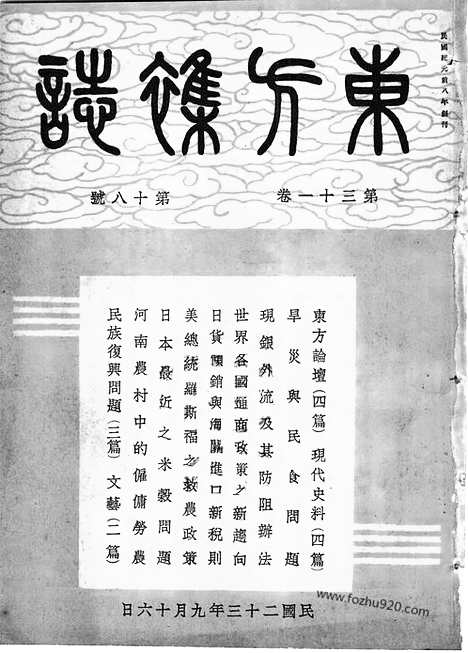 民國紀元前八年創刊
東方雜誌
第三十一卷
第十八號
東方論壇(四篇)現代史料(四篇)
旱災與民食問題
現銀外流及其防阻辦法
世界各國通商政策之新趨向
日貨傾銷與海關進口新稅則
美總統羅斯福之救農政策
日本最近之米穀問題
河南農村中的僱傭勞農
民族復興問題(三篇)文藝(二篇)
民國二十三年九月十六日
www.fozhu920.com